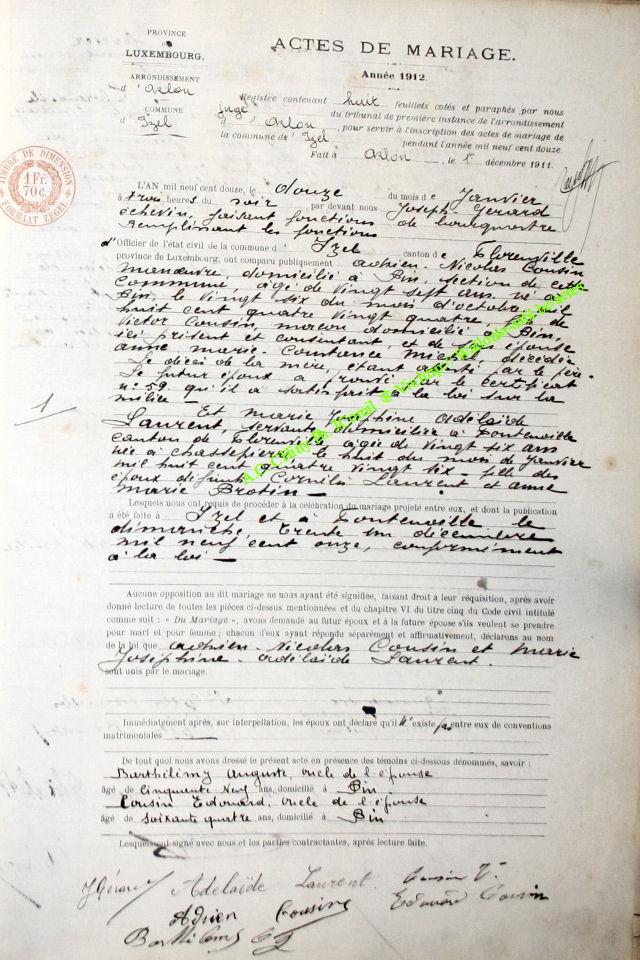 PROVINCE
DE
LUXEMBOURG.
ARRONDISSEMENT
d'Arlon
COMMUNE
d'Izel
TIMBRE DE DIMENSION
1 FR
70 c.
FORMAAT ZEGEL
ACTES DE MARIAGE.
Année 1912.
Registre contenant huit feuillets cotés et paraphés par nous
Juge du tribunal de première instance de l'arrondissement
d'Arlon, pour servir à l'inscription des actes de mariage de
la commune de Izel pendant l'année mil neuf cent douze.
Fait à Arlon, le 1 décembre 1911.
L'AN mil neuf cent douze, le douze du mois de Janvier
à trois heures du soir par devant nous Joseph Gérard
échevin, faisant fonctions de bourgmestre
remplissant les fonctions
d'Officier de l'état civil de la commune d'Izel canton de Florenville
province de Luxembourg, ont comparu publiquement Adrien-Nicolas Cousin
manœuvre, domicilié à Pin, section de cette
commune, âgé de vingt sept ans, né au
Pin, le vingt six du mois d'octobre mil
huit cent quatre vingt quatre, fils de
Victor Cousin, maçon domicilié à Pin,
ici présent et consentant, et de son épouse
Anne Marie-Constance Michel décédée
Le décès de la mère, étant attesté par le père.
Le futur époux a prouvé par le certificat
n° 59 qu'il a satisfait à la loi sur la
milice —
1
Et Marie Josephine Adélaïde
Laurent, servante domiciliée à Fontenoille
canton de Florenville âgée de vingt six ans
née à Chassepierre le huit du mois de Janvier
mil huit cent quatre vingt six fille des
époux défunts Cornélis Laurent et Anne
Marie Brotin —
Lesquels nous ont requis de procéder à la célébration du mariage projeté entre eux, et dont la publication
a été faite à Izel et à Fontenoille le
dimanche, trente un décembre
mil neuf cent onze, conformément
à la loi —
Aucune opposition au dit mariage ne nous ayant été signifiée, faisant droit à leur réquisition, après avoir
donné lecture de toutes les pièces ci-dessus mentionnées et du chapitre VI du titre cinq du Code civil intitulé
comme suit : « Du Mariage », avons demandé au futur époux et à la future épouse s'ils veulent se prendre
pour mari et pour femme ; chacun d'eux ayant répondu séparément et affirmativement, déclarons au nom
de la loi que Adrien-Nicolas Cousin et Marie
Joséphine-Adélaïde Laurent.
sont unis par le mariage.
Immédiatement après, sur interpellation, les époux ont déclaré qu'il n'existe pas entre eux de conventions
matrimoniales —
De tout quoi nous avons dressé le présent acte en présence des témoins ci-dessous dénommés, savoir :
Barthélimy Auguste, oncle de l'épouse
âgé de cinquante neuf ans, domicilié à Pin
Cousin Edouard, oncle de l'épouse
âgé de soixante quatre ans, domicilié à Pin
Lesquels ont signé avec nous et les parties contractantes, après lecture faite.
J Gérard Adelaïde Laurent Cousin V.
Adrien Cousin Edouard Cousin